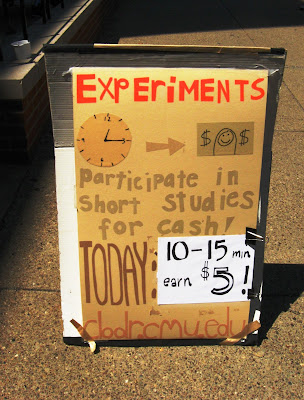 EXPERIMENTS
$ $
participate in
short studies
for cash!
TODAY:
10-15 min
earn $5!
cbdr.cmu.edu